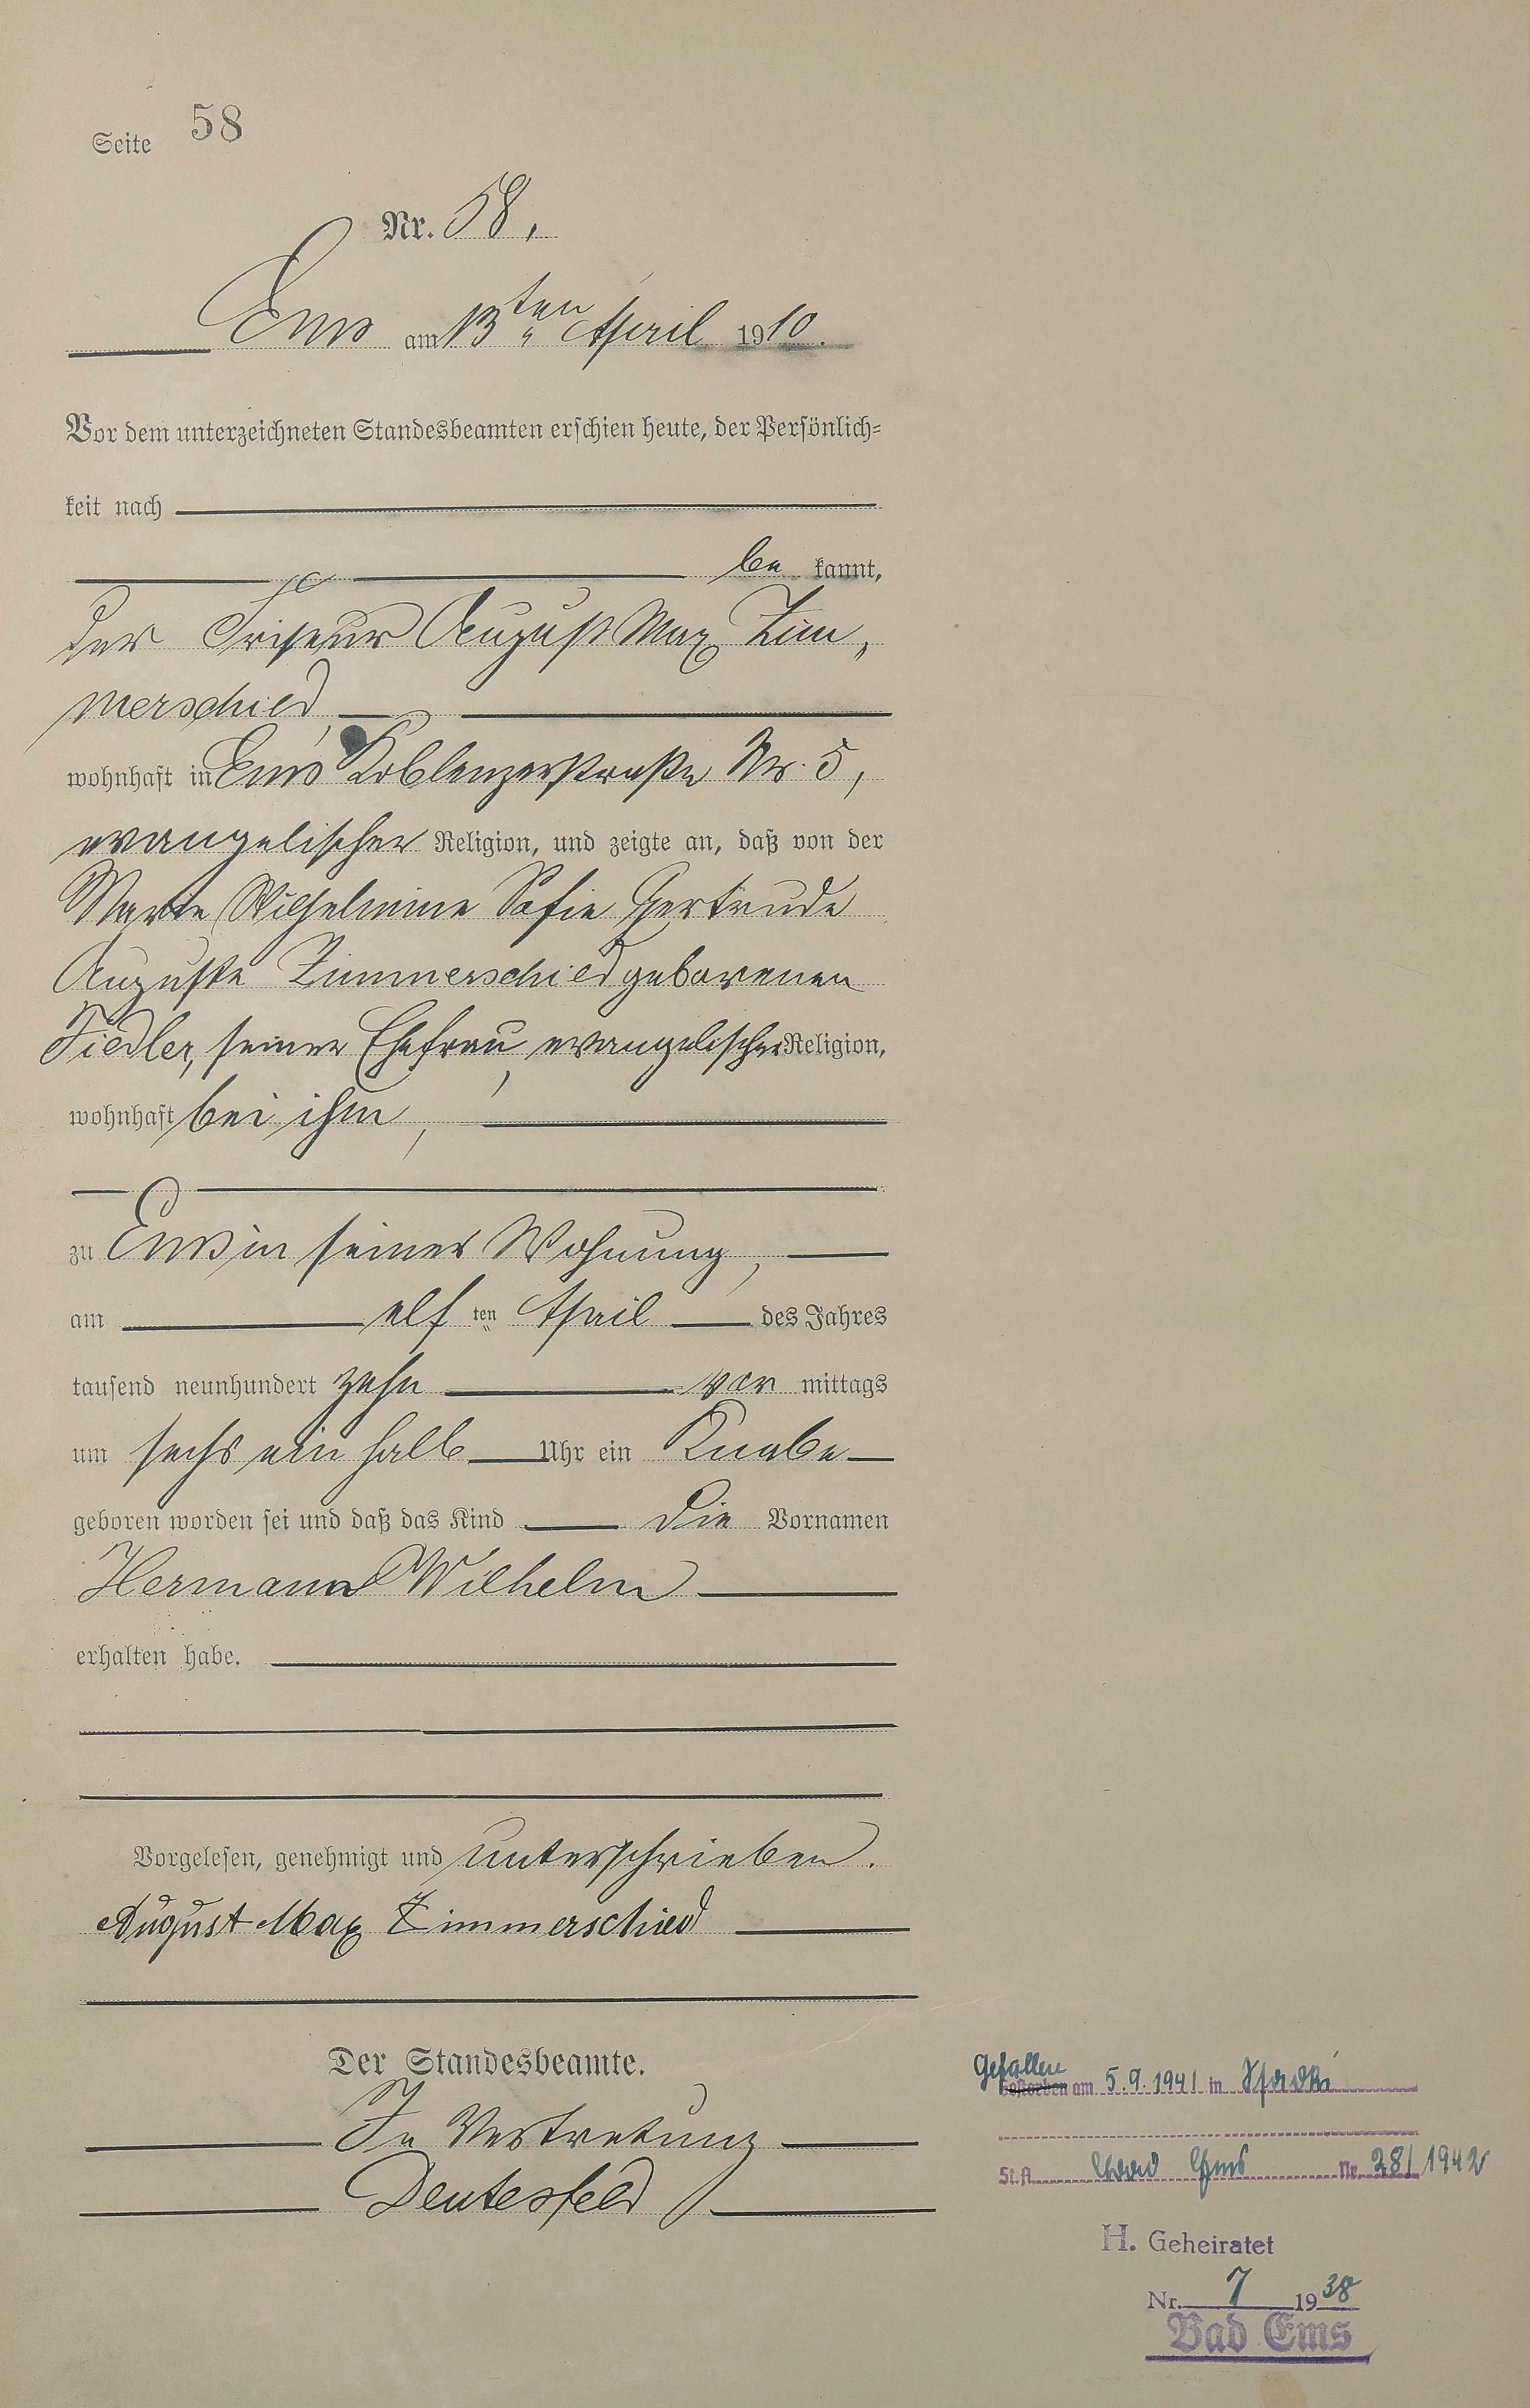 Seite 58
Nr. 58.
Ems am 13ten April 1910.
Vor dem unterzeichneten Standesbeamten erschien heute, der Persönlich-
keit nach
be kannt,
der Friseur August Max Zim-
merschied,
wohnhaft in Ems Koblenzerstraße Nr. 5,
evangelischer Religion, und zeigte an, daß von der
Marie Wilhelmine Sofie Gertrude
Auguste Zimmerschied geborenen
Fiedler, seiner Ehefrau, evangelischer Religion,
wohnhaft bei ihm,
zu Ems in seiner Wohnung,
am elf ten April des Jahres
tausend neunhundert zehn vor mittags
um sechs ein halb Uhr ein Knabe
geboren worden sei und daß das Kind die Vornamen
Hermann Wilhelm
erhalten habe.
Vorgelesen, genehmigt und unterschrieben.
August Max Zimmerschied
Der Standesbeamte.
In Vertretung
Deutesfeld
Gefallen
Gestorben am 5.9.1941 in
St.A. Bad Ems Nr. 28/1942
H. Geheiratet
Nr. 7 1938
Bad Ems